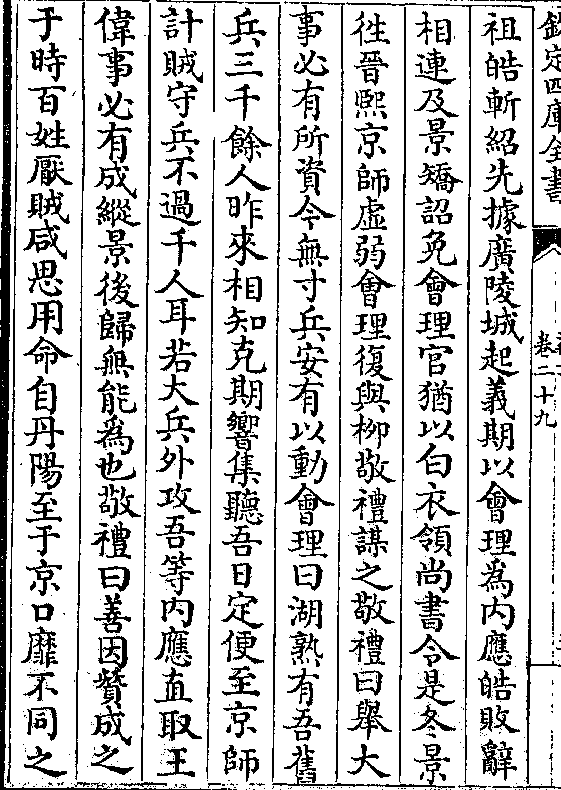 欽定四庫全書
卷二十九
祖皓斬紹先據廣陵城起義期以會理為内應皓敗辭
相連及景矯詔免會理官猶以白衣領尚書令是冬景
徃晉熙京師虛弱會理復與柳敬禮謀之敬禮曰舉大
事必有所資今無寸兵安有以動會理曰湖熟有吾舊
兵三千餘人昨來相知克期響集聽吾日定便至京師
計賊守兵不過千人耳若大兵外攻吾等内應直取王
偉事必有成縱景後歸無能為也敬禮曰善因贊成之
于時百姓厭賊咸思用命自丹陽至于京口靡不同之